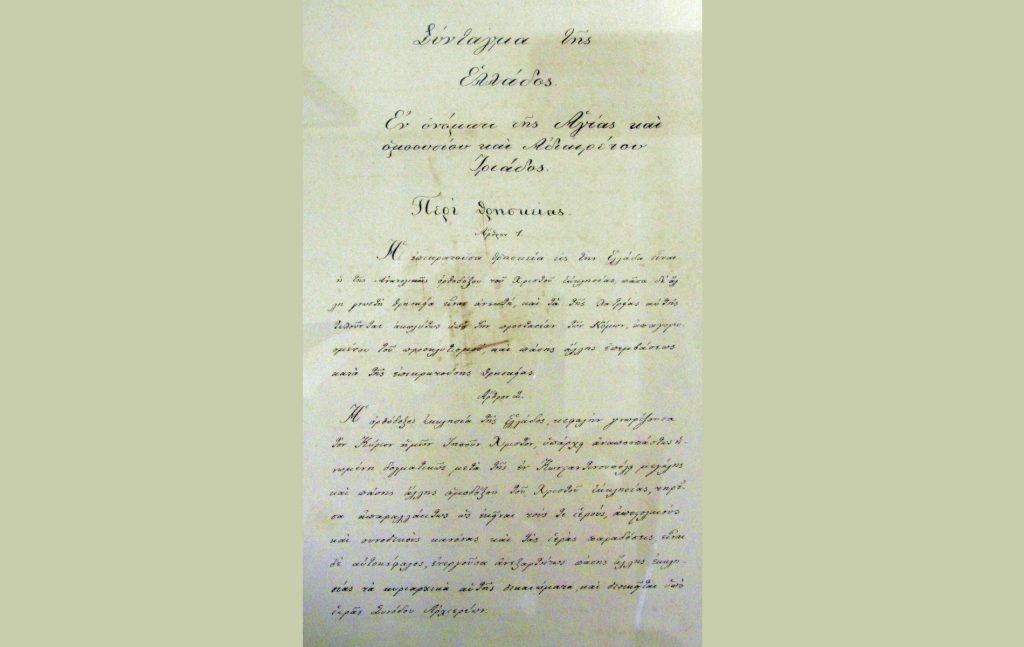 Σύνταγμα τῆς
Ἑλλάδος.
Ἐν ὀνόματι τῆς Ἁγίας καὶ
ὁμοουσίου καὶ Ἀδιαιρέτου
Τριάδος.
Περὶ θρησκείας.
Ἄρθρον 1.
Ἡ ἐπικρατοῦσα θρησκεία εἰς τὴν Ἑλλάδα εἶναι
ἡ τῆς Ἀνατολικῆς ὀρθοδόξου τοῦ Χριστοῦ ἐκκλησίας, πᾶσα δὲ ἄλ
λη γνωστὴ θρησκεία εἶναι ἀνεκτή, καὶ τὰ τῆς λατρείας αὐτῆς
τελοῦνται ἀκωλύτως ὑπὸ τὴν προστασίαν τῶν Νόμων, ἀπαγορευ
ομένου τοῦ προσηλυτισμοῦ, καὶ πάσης ἄλλης ἐπεμβάσεως
κατὰ τῆς ἐπικρατούσης θρησκείας.
Ἄρθρον 2.
Ἡ ὀρθόδοξος ἐκκλησία τῆς Ἑλλάδος, κεφαλὴν γνωρίζουσα
τὸν Κύριον ἡμῶν Ἰησοῦν Χριστόν, ὑπάρχει ἀναποσπάστως ἡ-
νωμένη δογματικῶς μετὰ τῆς ἐν Κωνσταντινουπόλει μεγάλης
καὶ πάσης ἄλλης ὁμοδόξου τοῦ Χριστοῦ ἐκκλησίας, τηροῦ-
σα ἀπαραλλάκτως ὡς ἐκεῖναι τούς τε ἱερούς, ἀποστολικοὺς
καὶ συνοδικοὺς κανόνας καὶ τὰς ἱερὰς παραδόσεις, εἶναι
δὲ αὐτοκέφαλος, ἐνεργοῦσα ἀνεξαρτήτως πάσης ἄλλης ἐκκλη-
σίας τὰ κυριαρχικὰ αὑτῆς δικαιώματα, καὶ διοικεῖται ὑπὸ
ἱερᾶς Συνόδου Ἀρχιερέων.